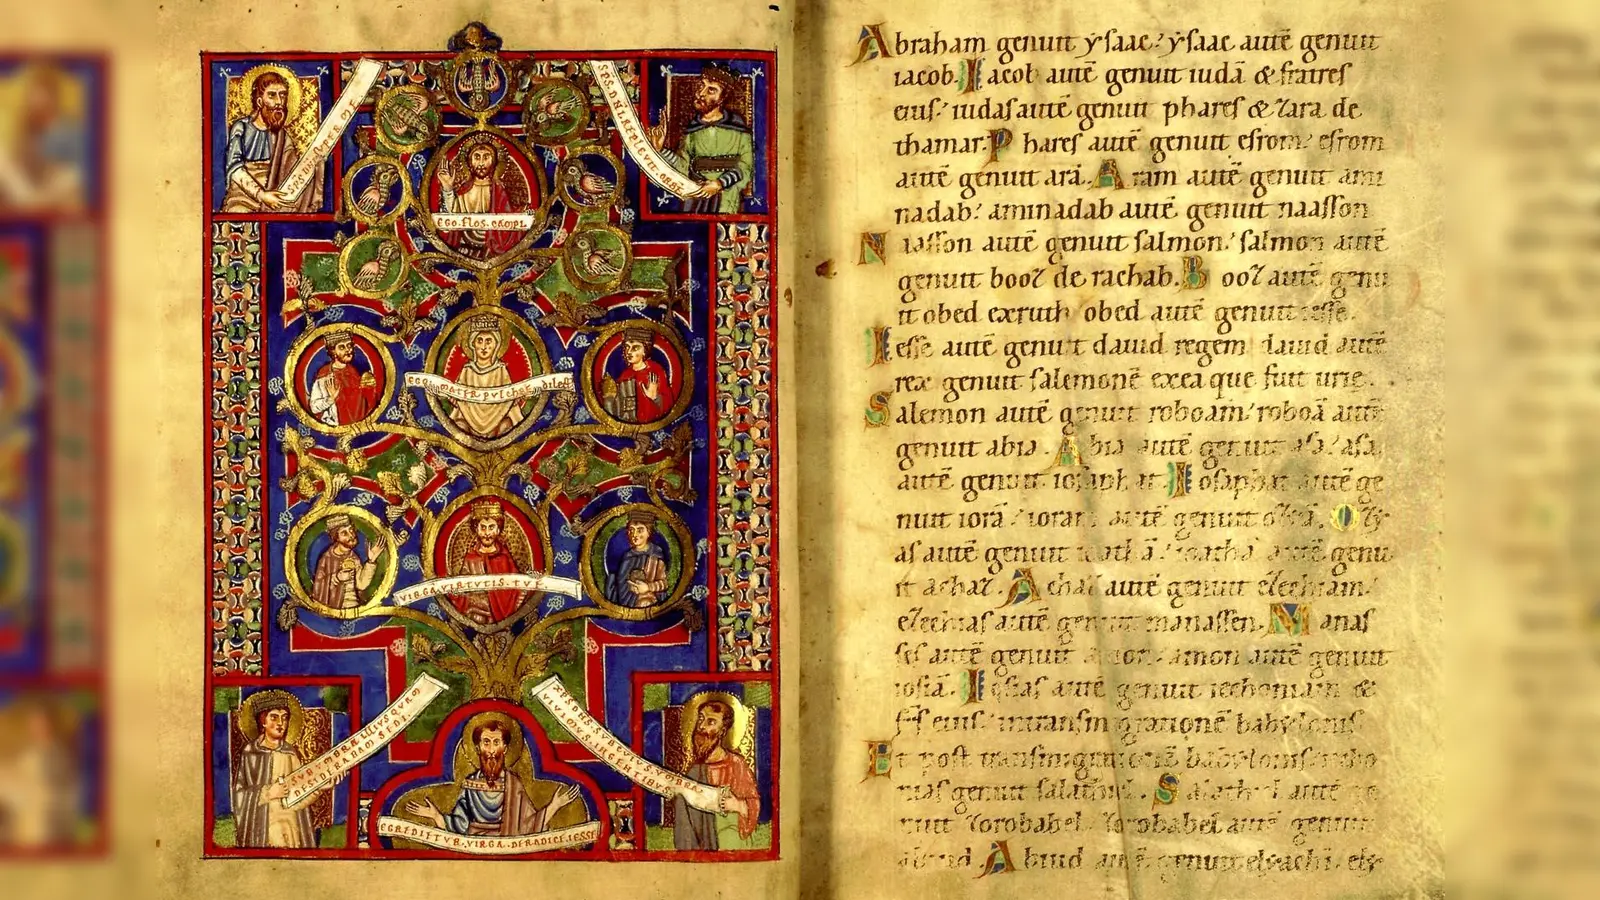 EGO.FLOS.CAMPI
VIRGA.VIRTUTIS.TVE
SVB.UMBRA.ILLIUS.QVEM
DESIDERABAM.SEDI.
EGREDIETVR.VIRGA.DE RADICE.IESSE
Abraham genuit ysaac. ysaac autē genuit
iacob. Iacob autē genuit iudā & fratres
eius. iudas autē genuit phares & zara de
thamar. Phares autē genuit esrom. esrom
autē genuit arā. Aram autē genuit ami
nadab. aminadab autē genuit naasson
Naasson autē genuit salmon. salmon autē
genuit booz de rachab. Booz autē genu
it obed exruth obed autē genuit iesse.
Iesse autē genuit dauid regem dauid autē
rex genuit salemonē exea que fuit urie.
Salemon autē genuit roboam. roboā autē
genuit abia. Abia autē genuit asa. asa
autē genuit iosaphat. Iosaphat autē ge
nuit iorā. ioram autē genuit oziā. Ozi
as autē genuit ioathā. ioathā autē genu
it achaz. Achaz autē genuit ezechiam.
ezechias autē genuit manassen. Manas
ses autē genuit amon. amon autē genuit
iosiā. Iosias autē genuit iechoniam &
ff eius. intransmigrationē babylonis
Et post transmigrationē babylonis iecho
nias genuit salathiel. Salathiel autē ge
nuit zorobabel. Zorobabel autē genuit
abiud. Abiud autē genuit elyachī. ely